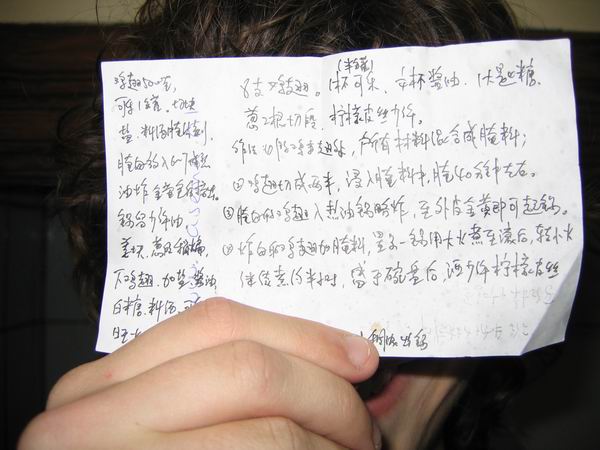 鸡翅500克,
可乐1罐、切块
盐、料酒腌片刻,
腌的放入6个成热
油炸金黄色后捞出。
锅留少许油,
姜块、葱段煸
下鸡翅、加盐、酱油
白糖、料酒、可
旺火
(半罐)
8支鸡翅。1杯可乐、半杯酱油、1大匙糖
葱2根切段、柠檬皮丝少许。
作法:所有材料混合成腌料;
①鸡翅切成两半,浸入腌料中,腌40分钟左右。
②腌的鸡翅入热油锅略炸,至外皮金黄即可起锅。
③炸的鸡翅加腌料,置另一锅用大火煮至滚后,转小火
继续煮约半小时,盛于碗盘后,洒少许柠檬皮丝
出锅